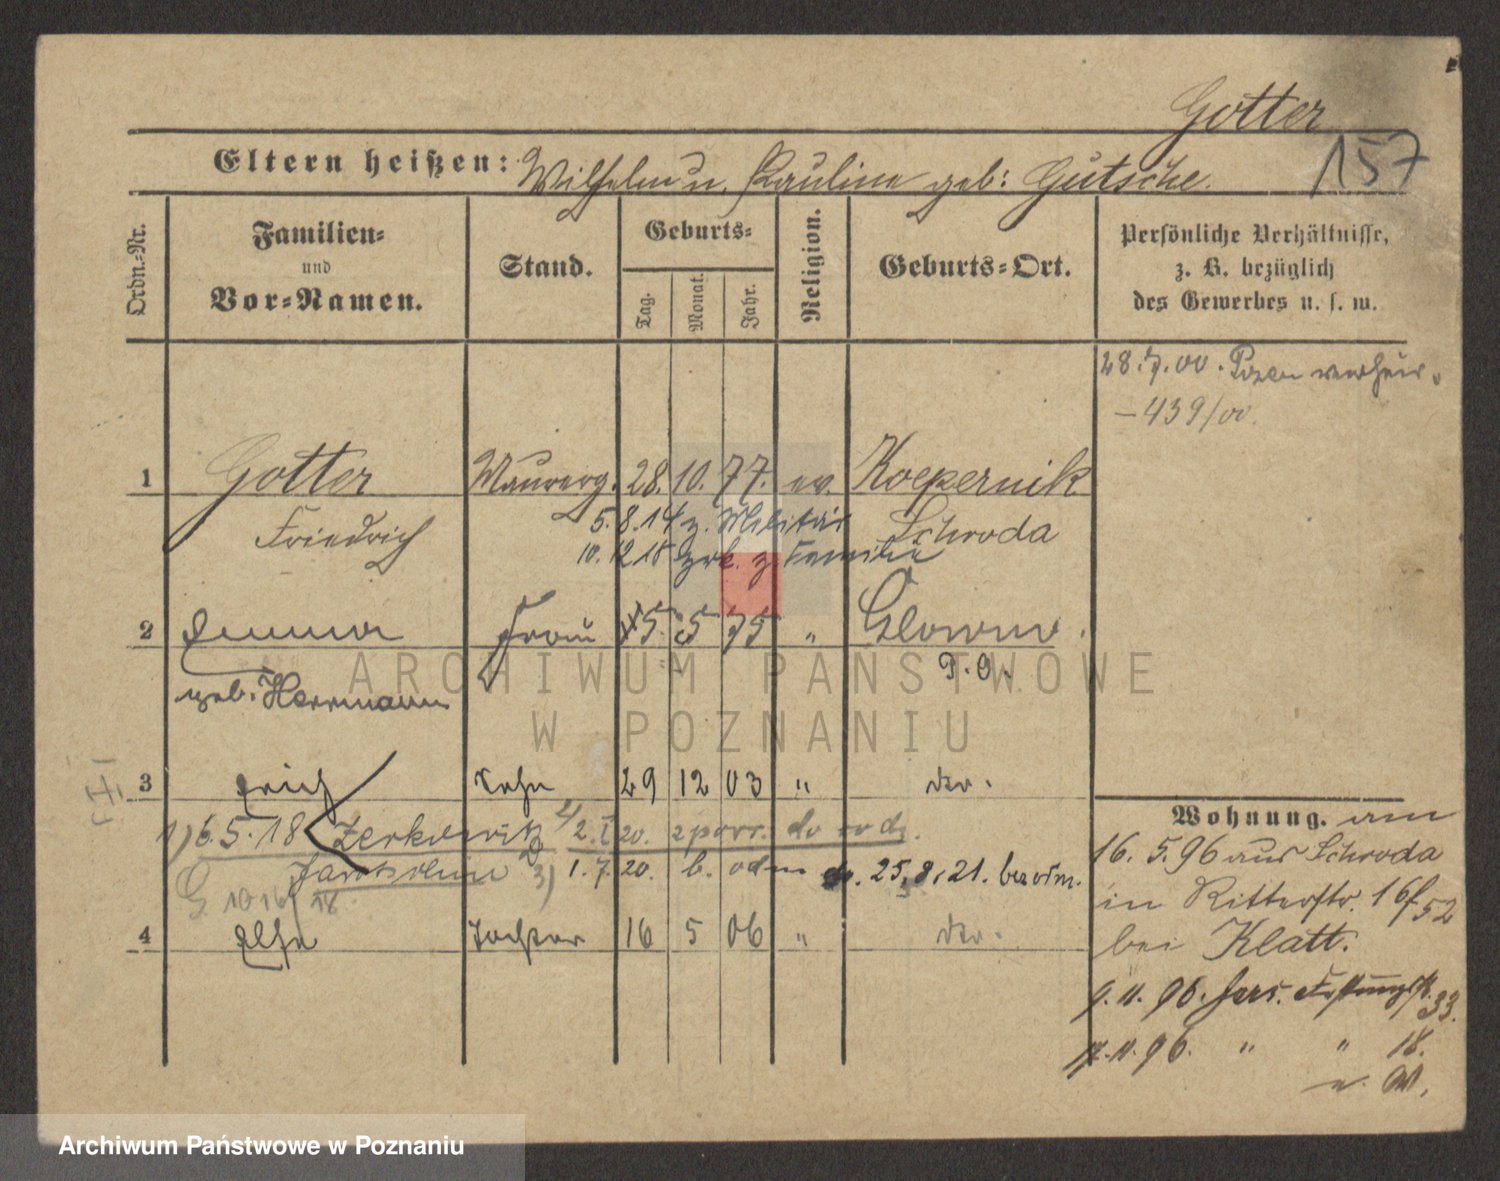 Gotter
157
Eltern heißen: Wilhelm u. Pauline geb: Gutsche.
Ordn.-Nr.
Familien-
und
Vor-Namen.
Stand.
Geburts-
Tag.
Monat.
Jahr.
Religion.
Geburts-Ort.
Persönliche Verhältnisse,
z. B. bezüglich
des Gewerbes u. s. w.
28.7.00. Posen verheir.
- 439/00.
1 Gotter Maurerg. 28. 10. 77. ev. Koepernik
Friedrich Schroda
5.8.14 z. Militär
10.12.18 zrk. z. Familie
2 Emma Frau 5. 5 75 " Glowno.
geb. Herrmann P. O.
3 Erich Sohn 29 12 03 " der.
1) 6.5.18 2) 2.I 20.
3) 1.7.20. b. 25.8.21.
4 Else Tochter 16 5 06 " der.
Wohnung. am
16. 5. 96 aus Schroda
in Ritterstr. 16/52
bei Klatt.
9. 11. 96. Festungsstr. 33.
17. 11. 96. " " 18.
ARCHIWUM PAŃSTWOWE
W POZNANIU
Archiwum Państwowe w Poznaniu